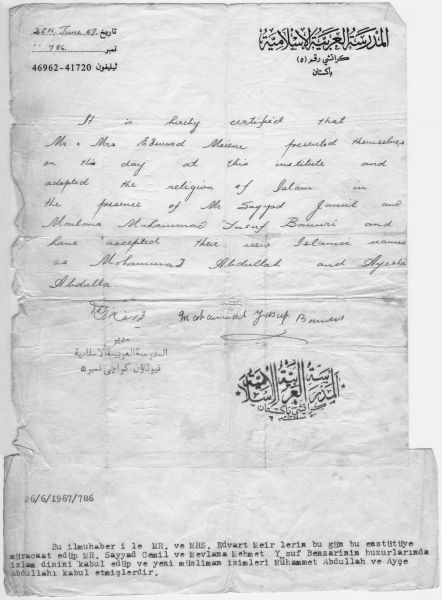 المدرسة العربية الاسلامية
كراتشي رقم (٥)
پاکستان
تاريخ 26th June 67.
نمبر 786
ٹیلیفون 41720-46962
It is hereby certified that
Mr & Mrs Edward Meiene presented themselves
on this day at this institute and
adopted the religion of Islam in
the presence of Mr Sayyad Jamil and
Moulana Muhammad Yusuf Banuri and
have accepted their new Islamic names
as Mohammad Abdullah and Ayesha
Abdulla.
Mohammad Yusuf Banuri
مدير
المدرسة العربية الاسلامية
نيوٹاؤن كراچی نمبر ۵
المدرسة العربية الاسلامية
كراتشي پاکستان
26/6/1967/786
Bu ilmuhaber i le MR. ve MRS. Edvart Meir lerin bu gün bu enstütüye
müracaat edüp MR. Sayyad Cemil ve Mevlana Mehmet Y suf Benzarinin huzurlarında
islam dinini kabul edüp ve yeni müsliman isimleri Mühammet Abdullah ve Ayşe
Abdullahı kabul etmişlerdir.